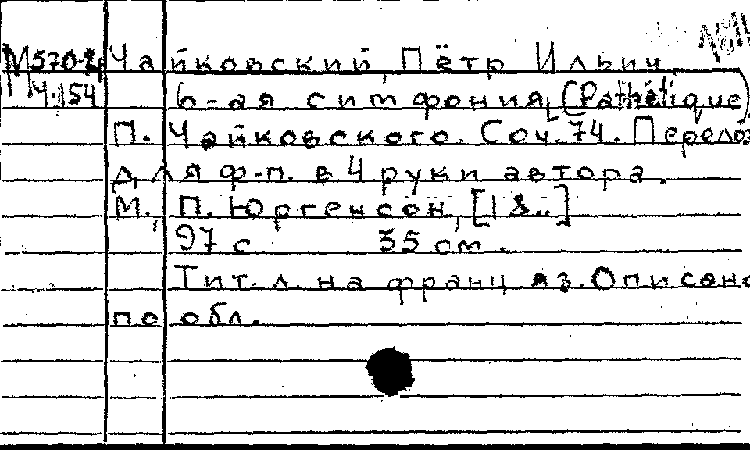 М570-2р Чайковский, Пётр Ильич.
Ч.154 6-ая симфония, (Pathétique)
П. Чайковского. Соч. 74. Перелож
для ф-п. в 4 руки автора.
М., П. Юргенсон, [18..]
97 с 35 см.
Тит. л. на франц яз. Описано
по обл.